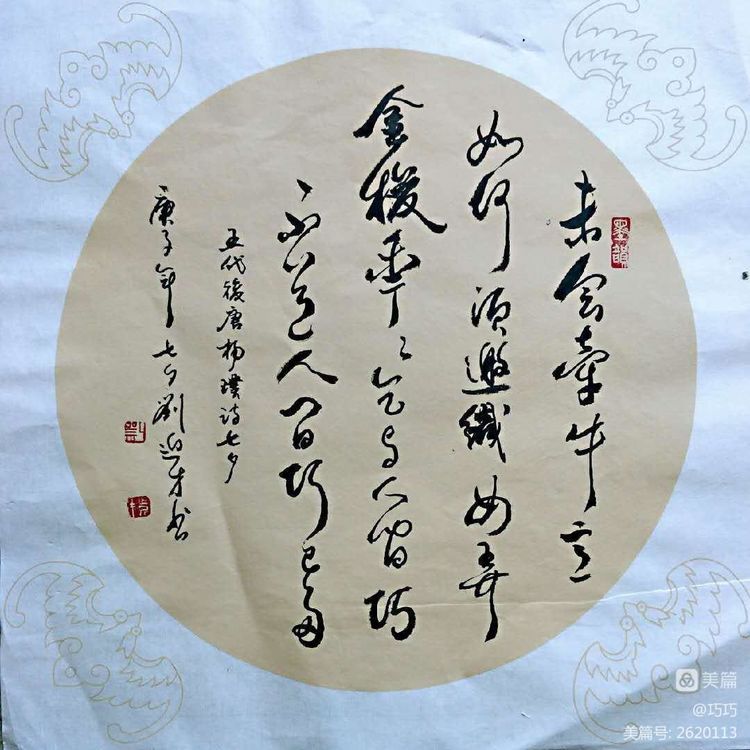 未会牽牛意
如何须邀織女弄
金梭年々乞与人间巧
不道人间巧已多
五代後唐杨璞诗七夕
庚子年七夕劉迎才书
墨韻
美篇
@巧巧
美篇号: 2620113